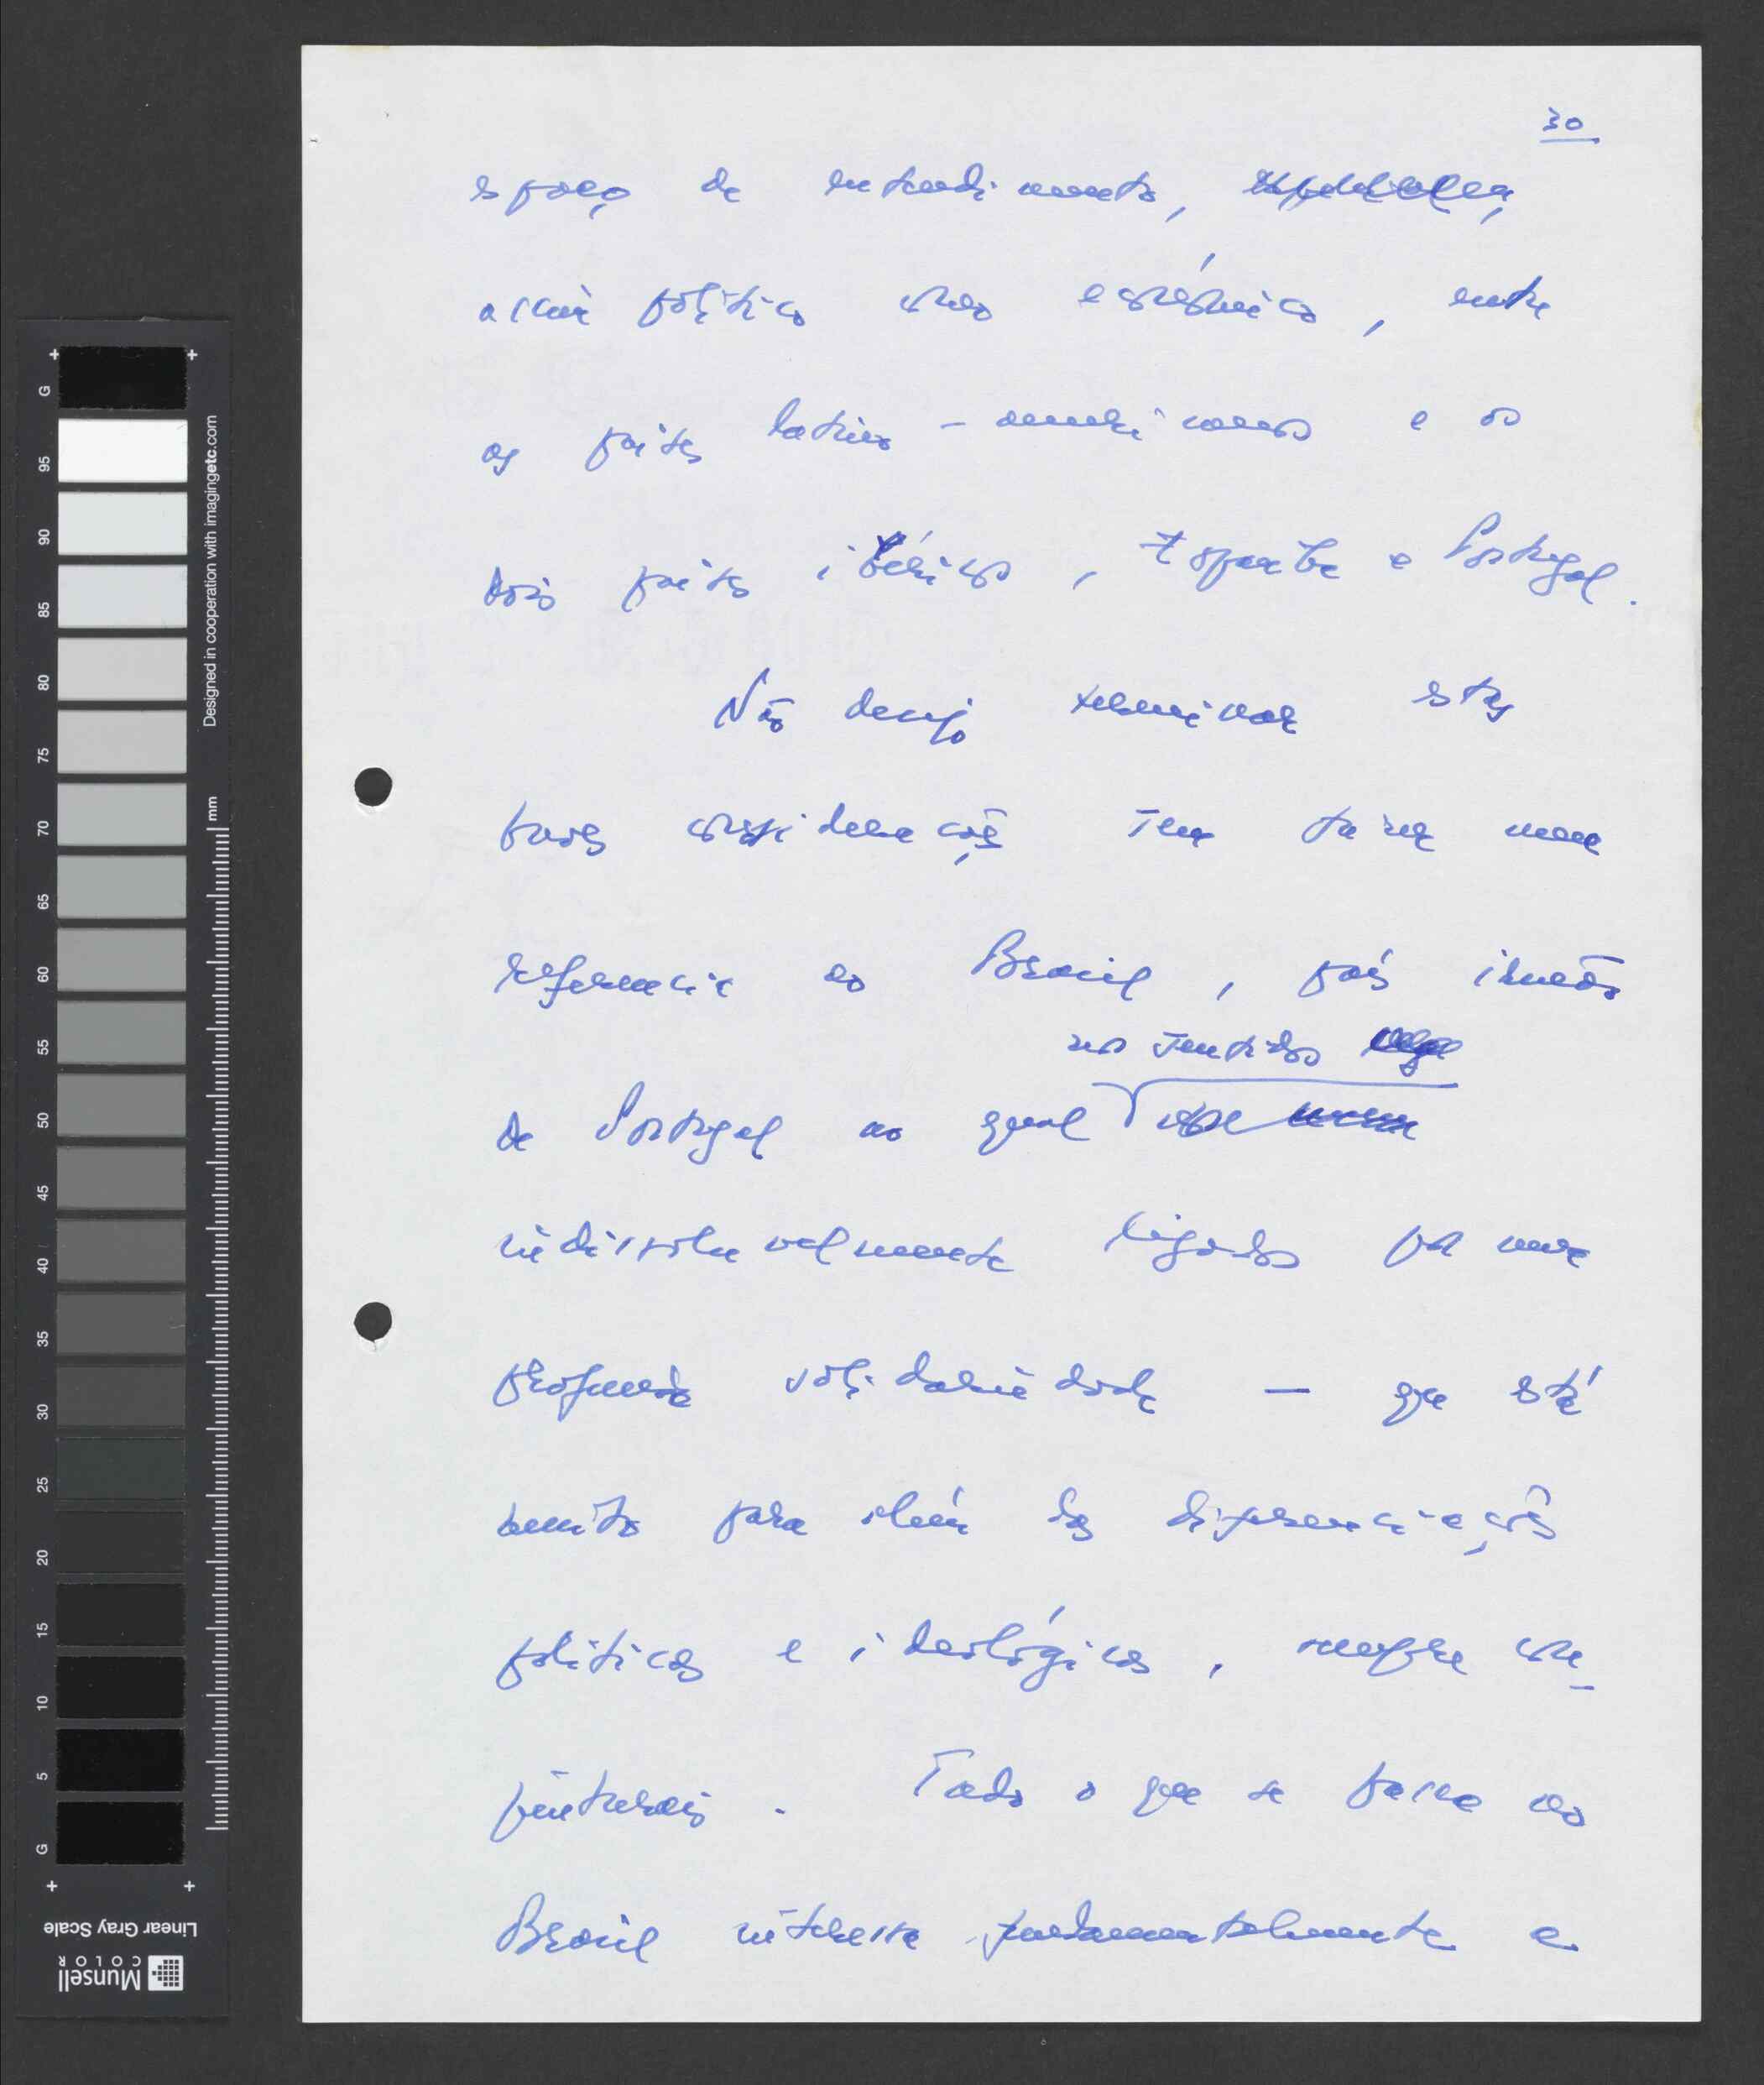 30
espaço de entendimento,
assim político como económico, entre
os países latino-americanos e os
dois países ibéricos, Espanha e Portugal.
Não desejo terminar estas
breves considerações sem fazer uma
referência ao Brasil, país irmão
nos sentimos
de Portugal ao qual
indissoluvelmente ligados por uma
profunda solidariedade — que está
muito para além das diferenciações
políticas e ideológicas, sempre con-
junturais. Tudo o que se passa no
Brasil interessa fundamentalmente a
G 95 90 85 80 75 70 65 60 55 50 45 40 35 30 25 20 15 10 5 G
Designed in cooperation with imagingetc.com
mm
Linear Gray Scale
Munsell
COLOR